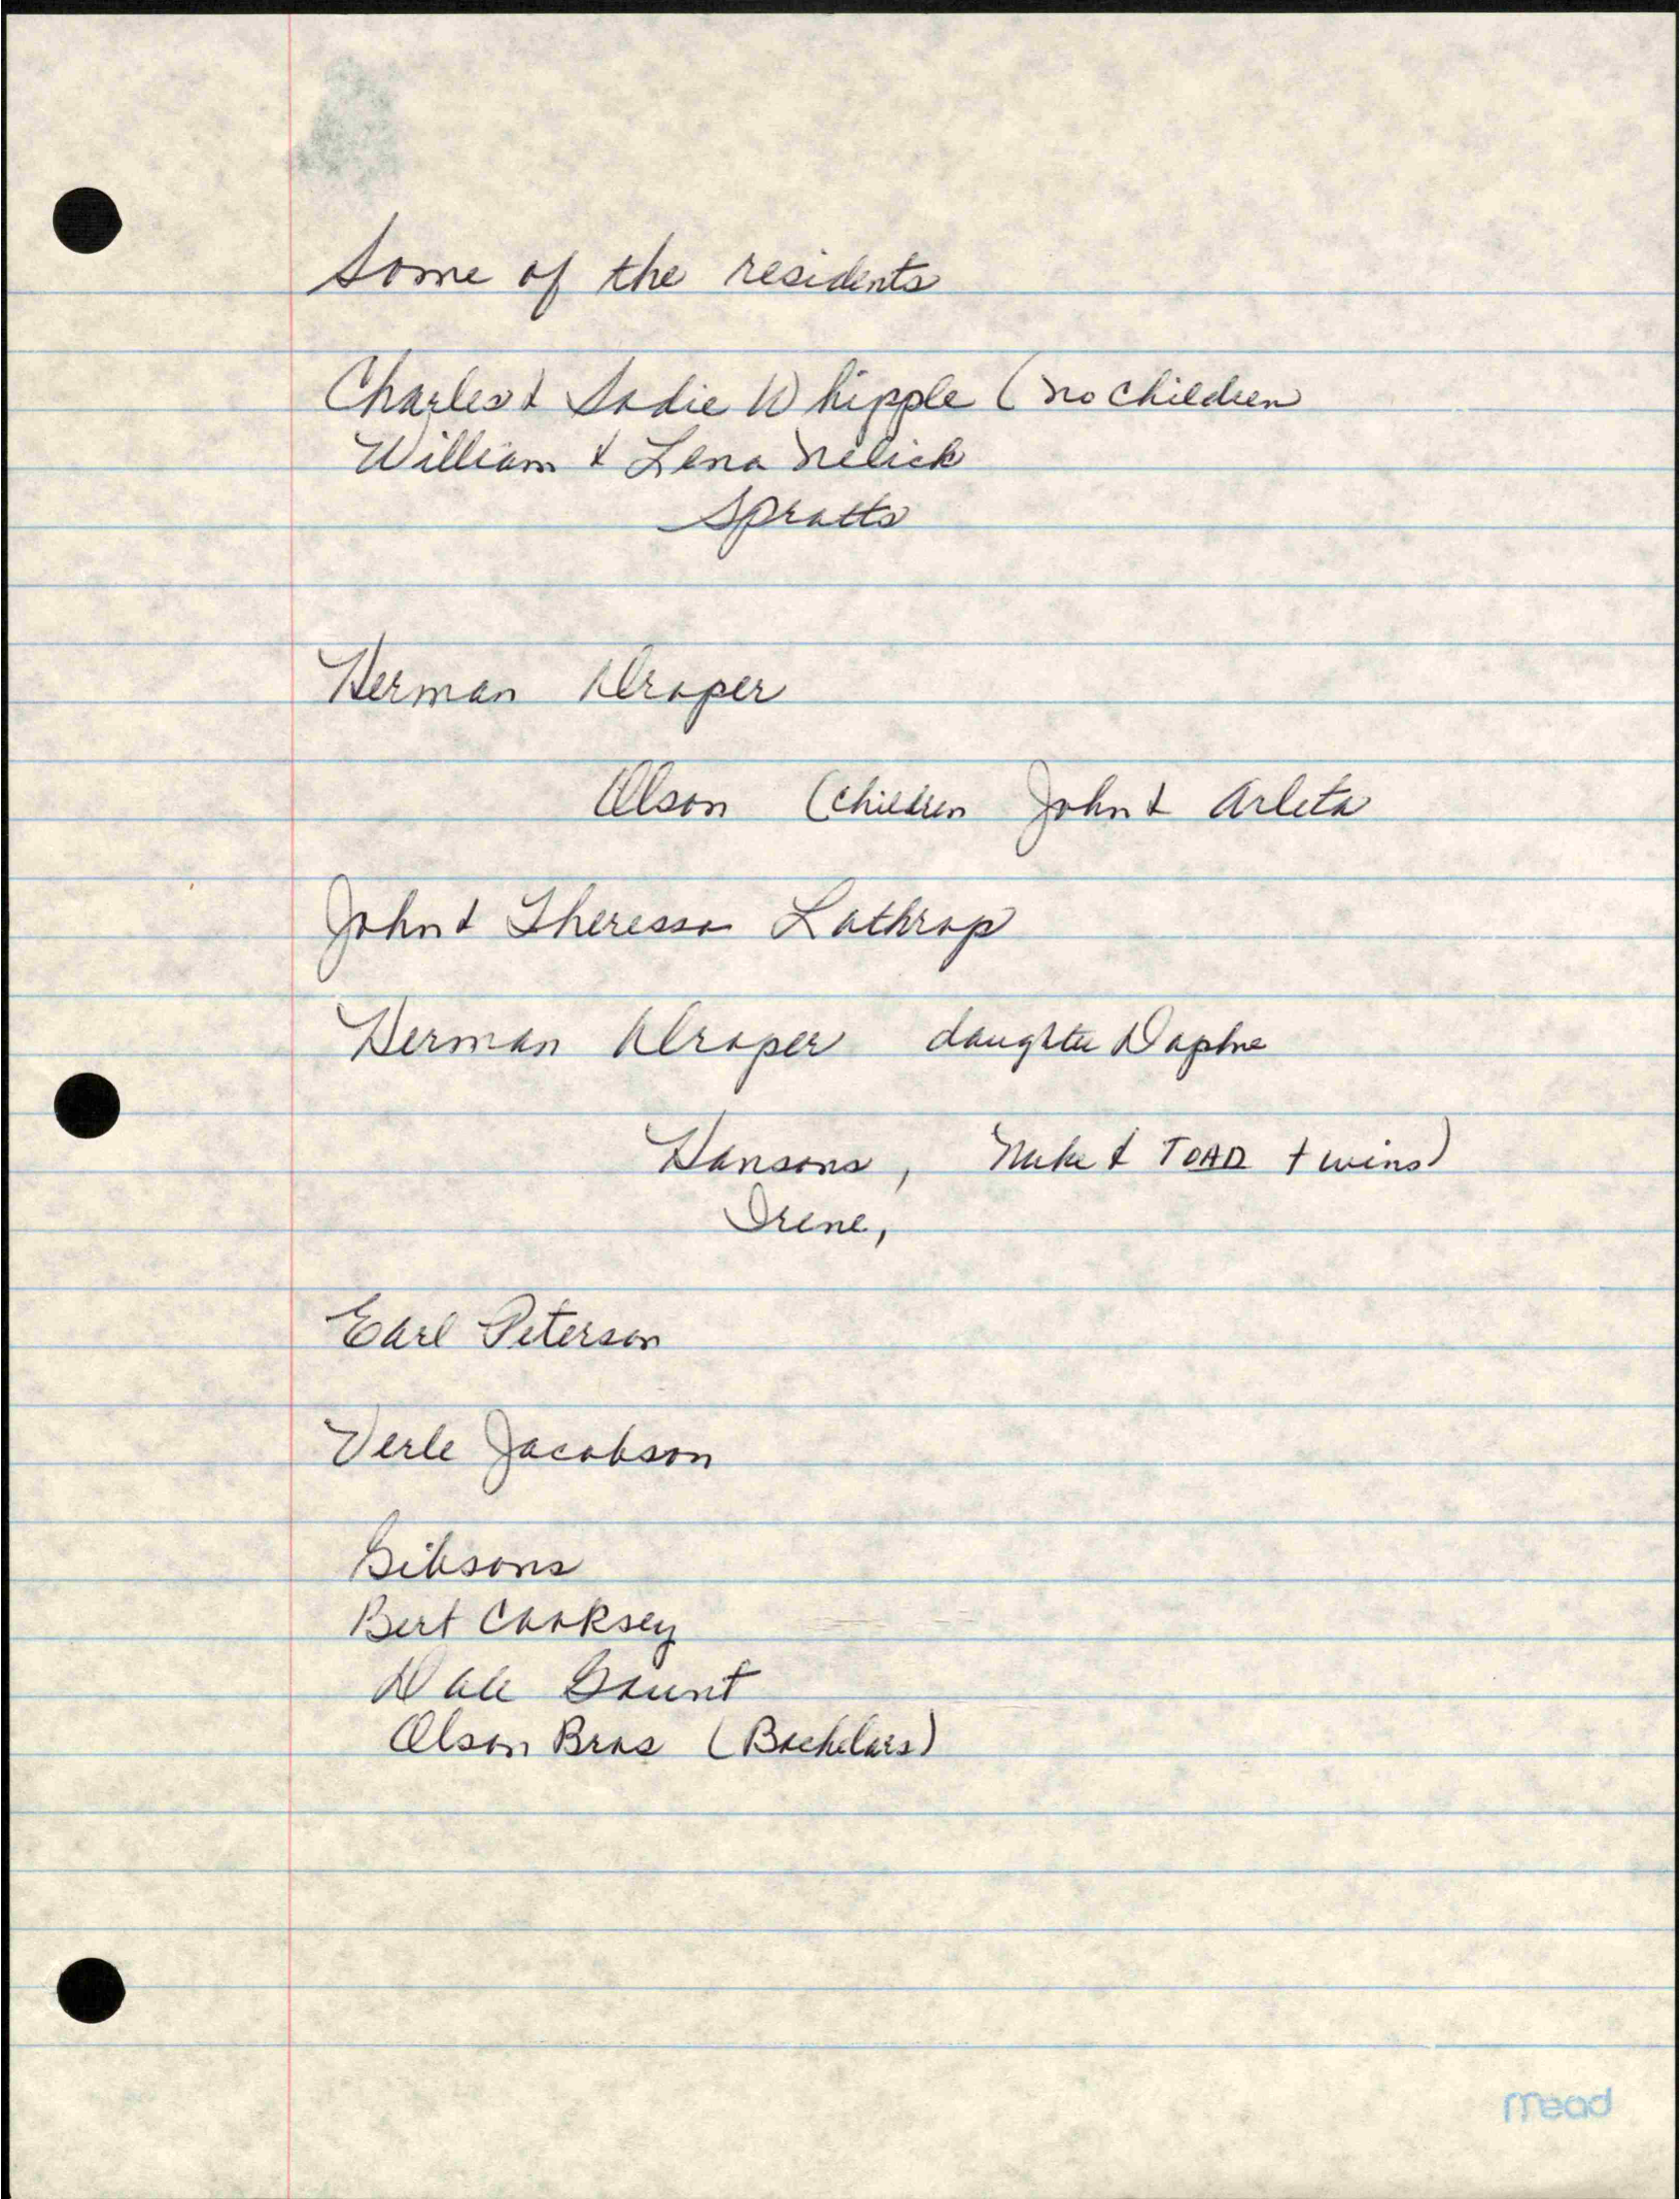 Some of the residents
Charles & Sadie Whipple (no children
William & Lena Nelick
Spratts
Herman Draper
Olson (Children John & Arleta
John & Theressa Lathrop
Herman Draper daughter Daphne
Hansons, & TOAD twins)
Irene,
Earl Peterson
Verle Jacobson
Gibsons
Bert Cooksey
Dale Gaunt
Olson Bros (Bachelors)
mead